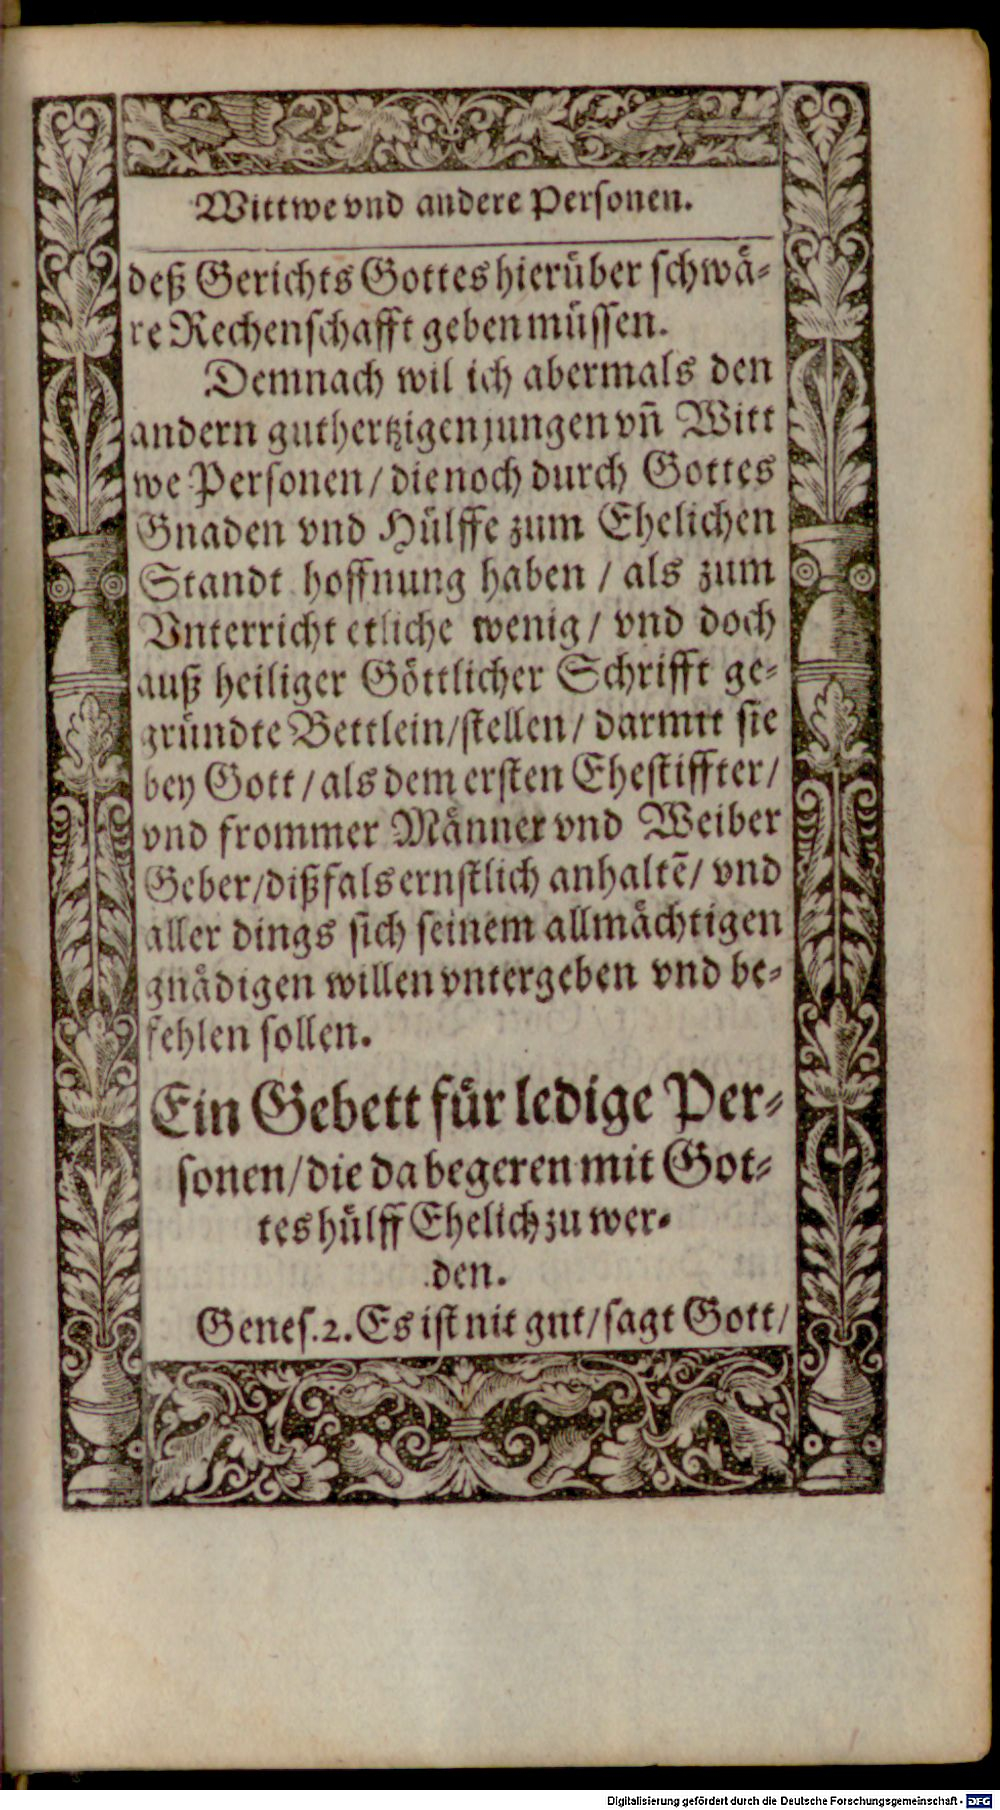 Wittwe vnd andere Personen.
deß Gerichts Gottes hierüber schwä-
re Rechenschafft geben müssen.
Demnach wil ich abermals den
andern guthertzigen jungen vñ Witt
we Personen / die noch durch Gottes
Gnaden vnd Hülffe zum Ehelichen
Standt hoffnung haben / als zum
Vnterricht etliche wenig / vnd doch
auß heiliger Göttlicher Schrifft ge-
gründte Bettlein / stellen / darmit sie
bey Gott / als dem ersten Ehestiffter /
vnd frommer Männer vnd Weiber
Geber / dißfals ernstlich anhaltē / vnd
aller dings sich seinem allmächtigen
gnädigen willen vntergeben vnd be-
fehlen sollen.
Ein Gebett für ledige Per-
sonen / die da begeren mit Got-
tes hülff Ehelich zu wer-
den.
Genes. 2. Es ist nit gut / sagt Gott /
Digitalisierung gefördert durch die Deutsche Forschungsgemeinschaft - DFG